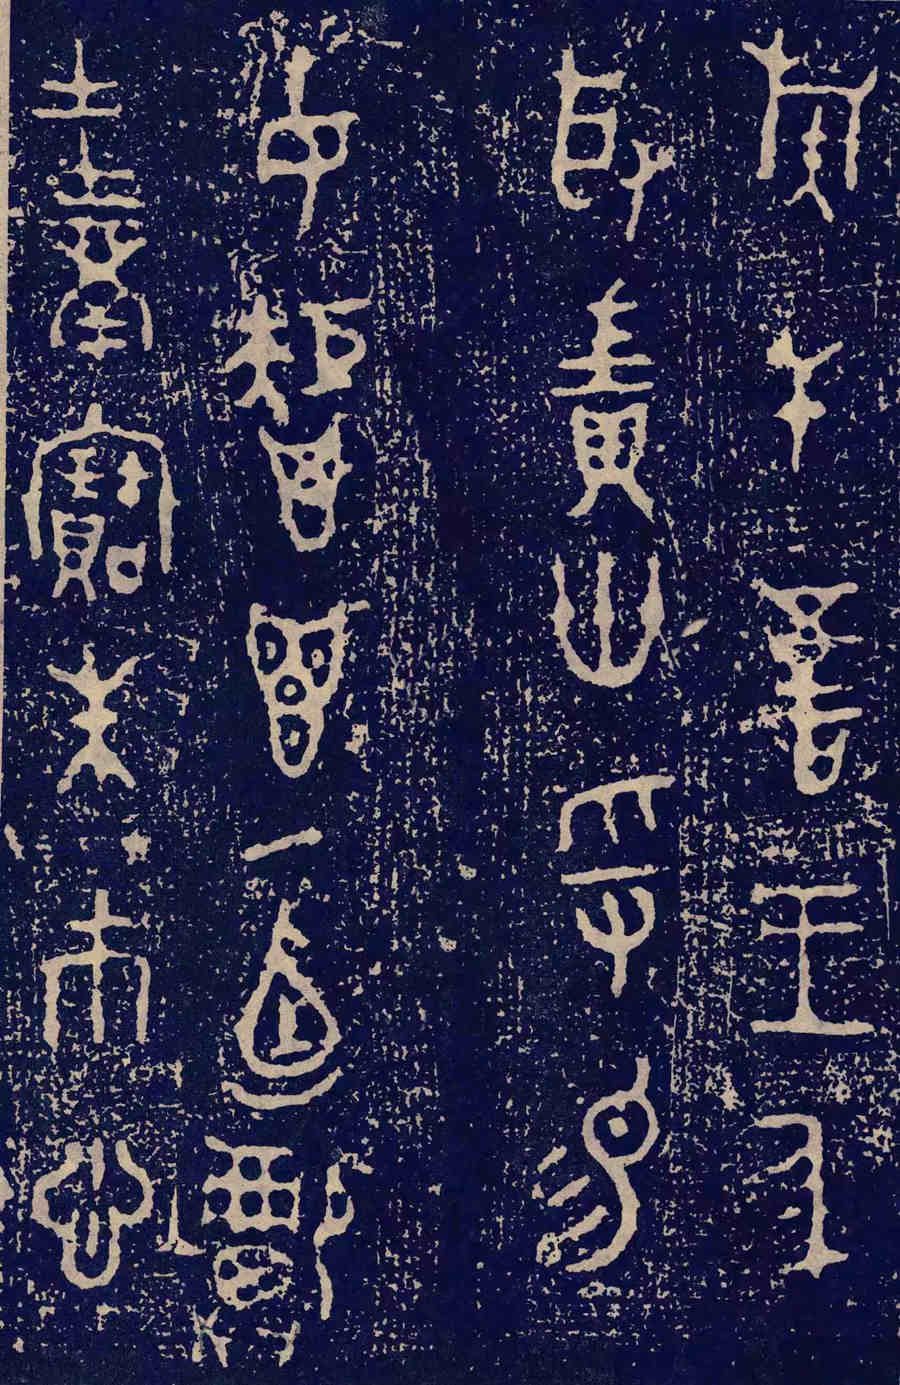 族干吾王身
取責卅寽易
女秬鬯一卣祼
圭瓚寶朱巿悤